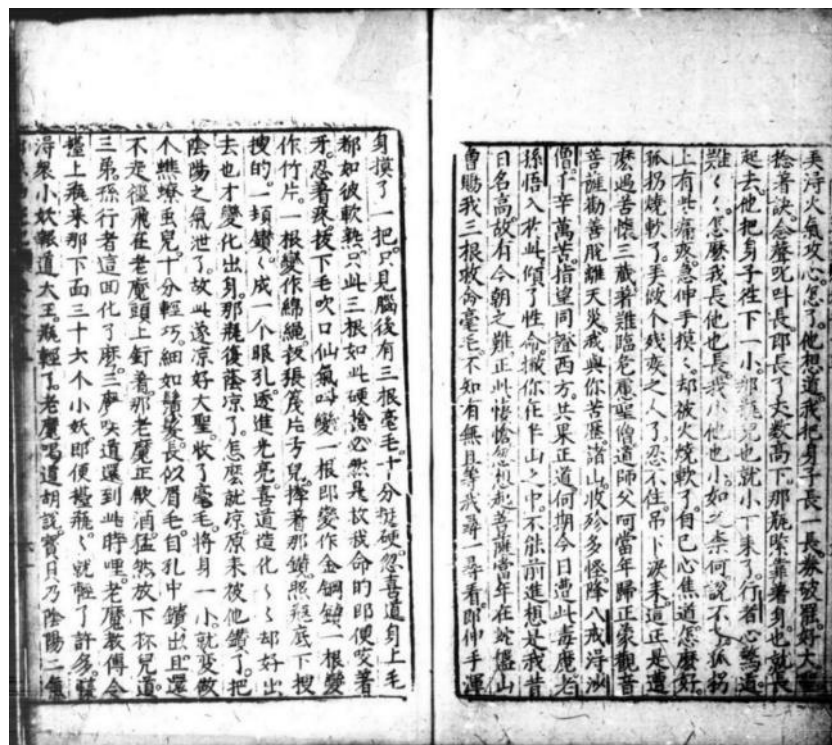 美浔火氣攻心。怎了。他想道。我把身子長一長。券破罷。好大聖
捻著訣。念聲呪。叫長。即長了丈数高下。那瓶𦂳靠着身也就長
起去。他把身子往下一小。那瓶兒也就小下来了。行者心驚道。
難〻。怎麽我長他也長。我小他也小。如之奈何。説不了。孤拐
上有些痛疼。急伸手摸〻。却被火燒軟了。自己心焦道。怎麽好。
孤拐燒軟了。美做个残疾之人了。忍不住吊下淚来。這正是遭
麽遇苦懷三藏。著難臨危慮聖僧。道師父呵。當年歸正。蒙觀音
菩薩勸善。脱離天災。我與你苦歷諸山。收殄多怪。降八戒。浔沙
僧。千辛萬苦。指望同證西方。共果正道。何期今日遭此毒魔。老
孫悟入於此。傾了性命。撇你在半山之中。不能前進。想是我昔
日名高。故有今朝之難。正此悽愴。忽想起菩薩當年在蛇盤山
曾賜我三根救命毫毛。不知有無。且等我尋一尋看。即伸手渾
身摸了一把。只見腦後有三根毫毛。十分挺硬。忽喜道。身上毛
都如彼軟熟。只此三根如此硬搶。必然是救我命的。即便咬着
牙。忍着疼。拔下毛。吹口仙氣。叫變。一根即變作金鋼鑚。一根變
作竹片。一根變作綿繩。扳張篾片弓兒。捧着那鑚。照瓶底下搜
搜的。一頓鑚〻成一个眼孔。透進光亮。喜道。造化〻〻却好出
去也。才變化出身。那瓶復蔭凉了。怎麽就凉。原来被他鑚了。把
陰陽之氣泄了。故此遂凉。好大聖。收了毫毛。將身一小。就変做
个蟭蟟虫兒。十分輕巧。細如鬚髮。長似眉毛。自孔中鑚出。且還
不走。徑飛在老魔頭上釘着。那老魔正飲酒。猛然放下杯兒道。
三弟。孫行者這回化了麽。三魔咲道。還到此時哩。老魔教傳令
擡上瓶来。那下面三十六个小妖。即便擡瓶〻就輕了許多。䜛
浔衆小妖報道。大王。瓶輕了。老魔喝道。胡説。寶貝乃陰陽二氣